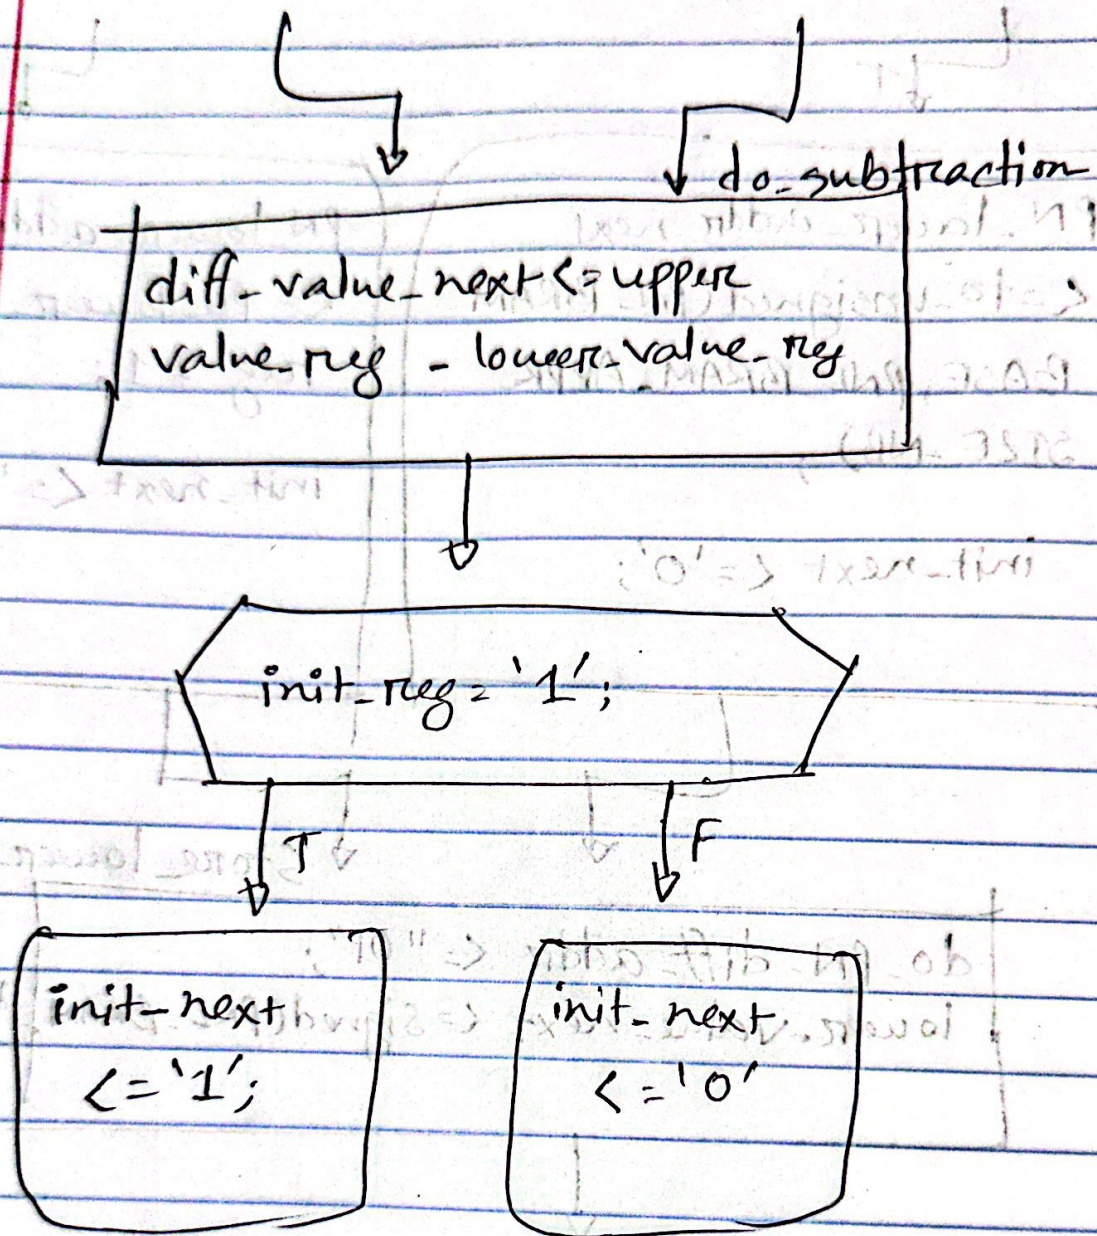 do_subtraction
diff_value_next <= upper
value_reg - lower_value_reg
init_reg = '1';
T
F
init_next
<= '1';
init_next
<= '0'